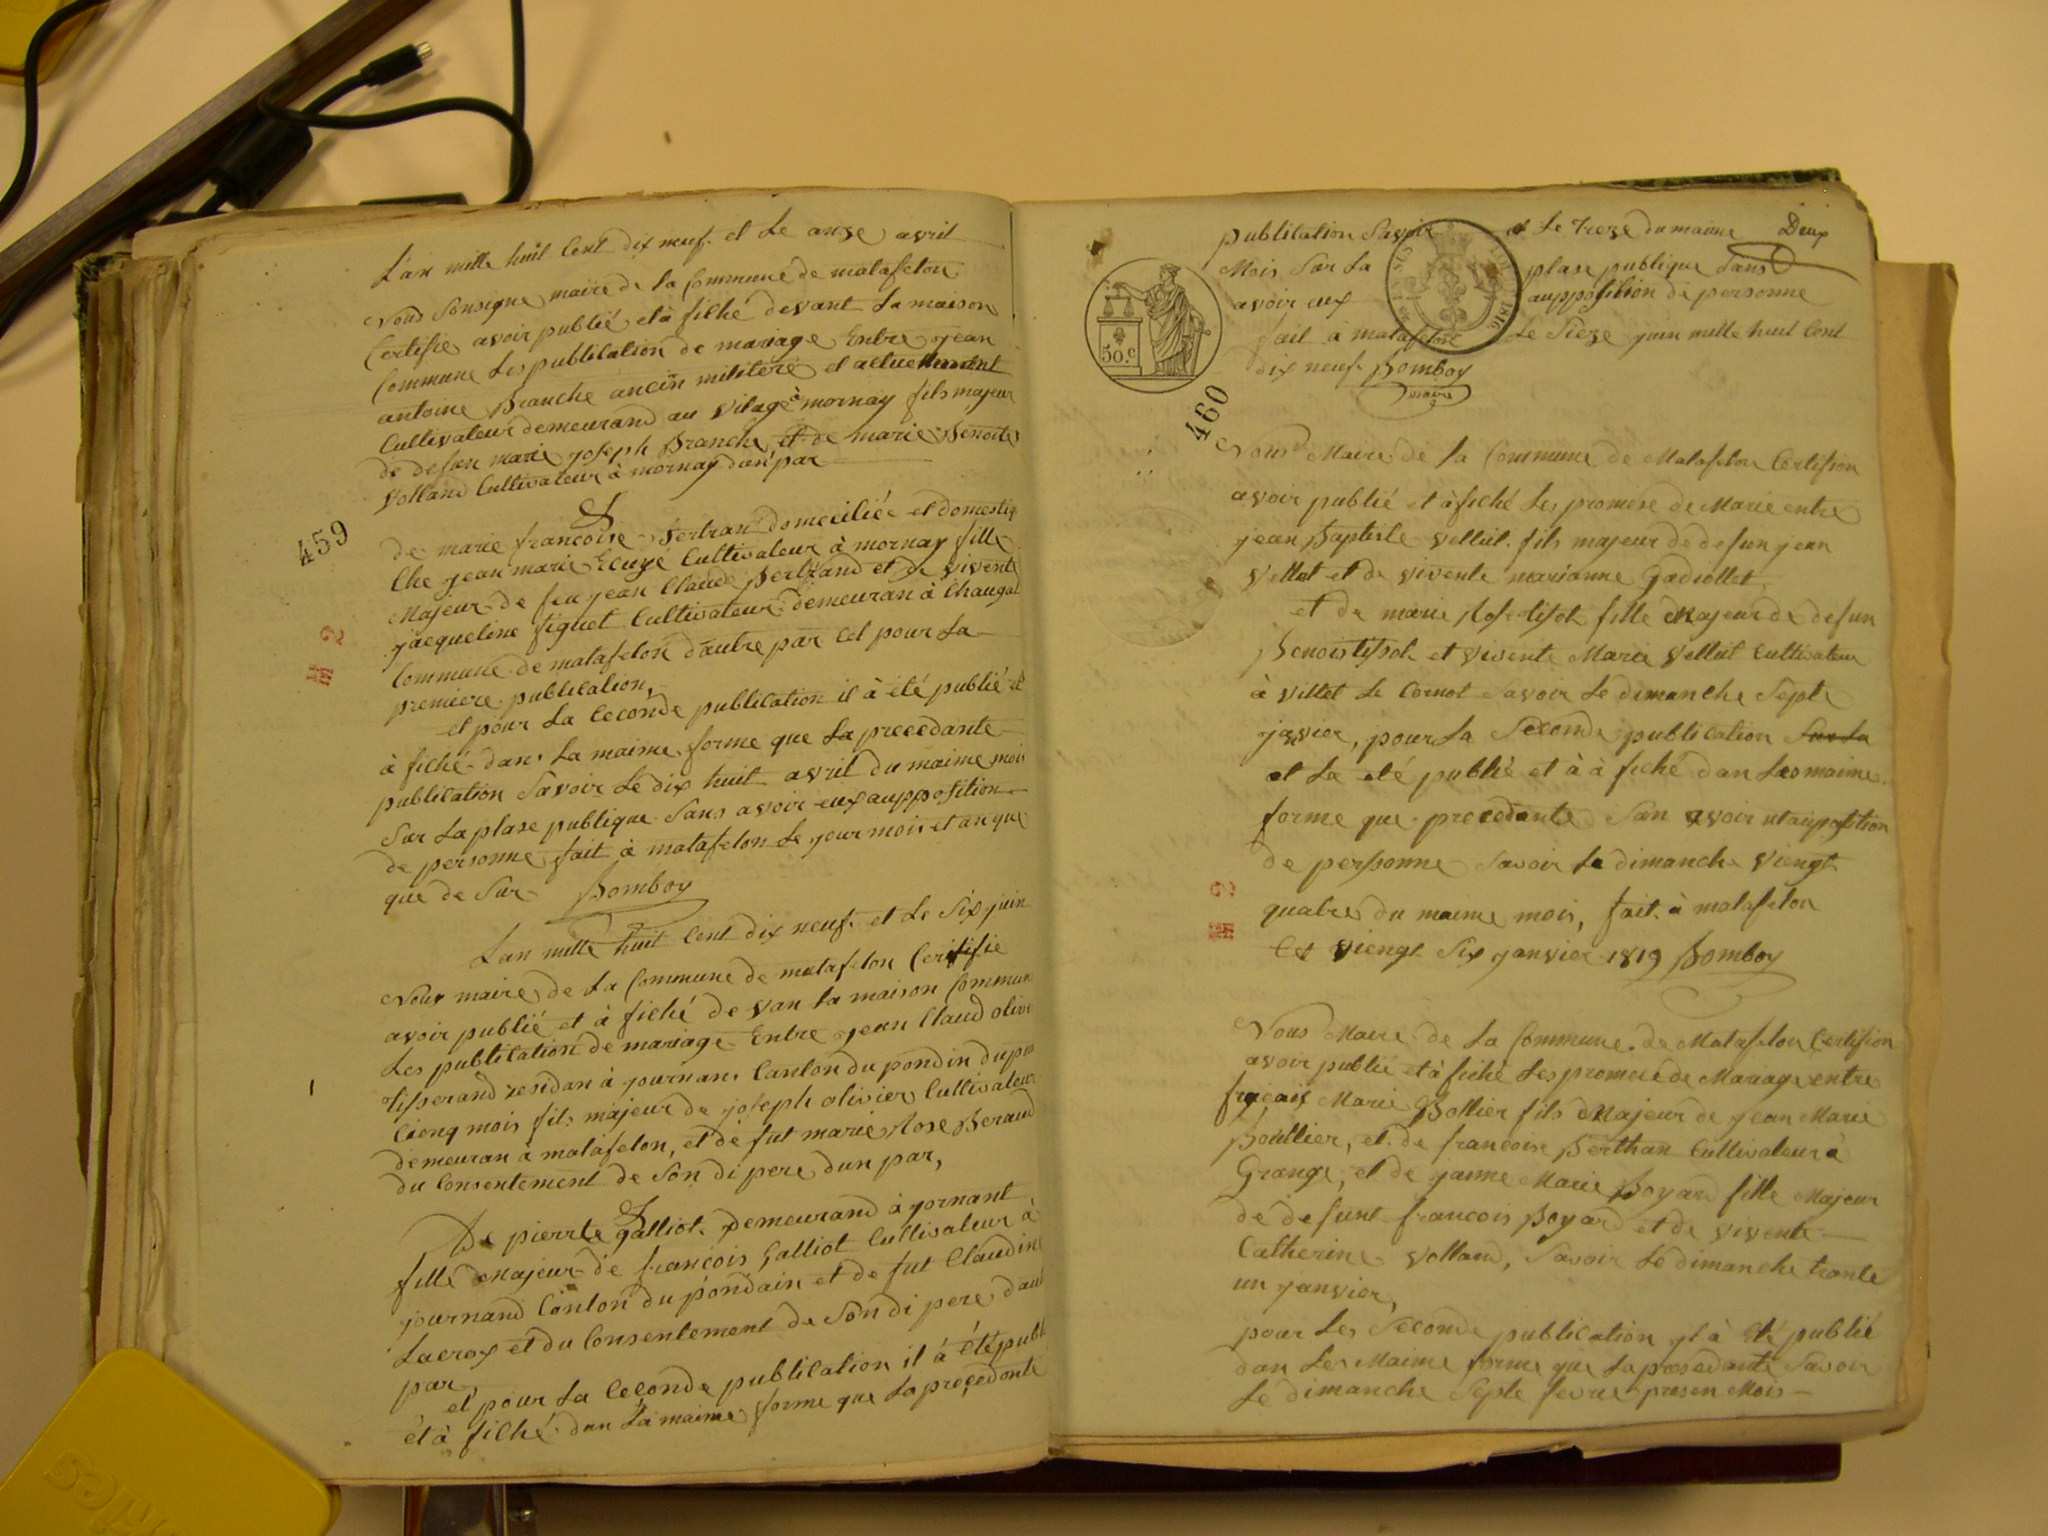 L'an mille huit Cent dix neuf. et Le onze avril
nous Sousigne maire de la Commune de matafelon
Certifie avoir publié et à fiché devant La maison
Commune Les publication de mariage Entre jean
antoine Branche ancien militere et actuellement
Cultivateur demeurand au vilage à mornay fils majeur
de defun marie joseph Branche et de marie Benoite
Volland Cultivateur à mornay dun par
&
de marie francoise Bertran domeciliée et domestiq
Che jean marie Ecuyé Cultivateur à mornay fille
Majeur de feu jean Claude Bertrand et de vivente
jacqueline figuet Cultivateur demeuran à Chaugat
Commune de matafelon dautre par Cet pour La
premiere publication,
et pour La Ceconde publication il à été publié et
à fiché dans La maime forme que La precedante
publication Savoir Le dix huit avril du maime mois
Sur La plase publique Sans avoir eux aupposition
de personne fait à matafelon Le jour mois et an que
que de Sur Bomboy
459
M 2
Lan mille huit Cent dix neuf. et Le Six juin
Nous maire de La Commune de matafelon Certifie
avoir publié et à fiché de van La maison Commune
Les publication de mariage Entre jean Claud olivie
tisserand residan à journan, Canton du pondin dupui
Cienq mois fils majeur de joseph olivier Cultivateur
demeuran à matafelon, et de fut marie Rose Beraud
du Consentement de Son di pere dun par,
&
De pierrte galliot demeurand à jornant
fille Majeur de francois Galliot Cultivateur à
journand Canton du pondain et de fut Claudine
Lacrox et du Consentement de Son di pere daut
par,
et pour La Ceconde publication il à été publ
et à fiché dan La maime forme que La precedante
publication Savoir et Le Treze du maime Deux
Mois Sur La plase publique Sans
avoir eux aupposition de personne
fait à matafelon Le Sieze juin mille huit Cent
dix neuf. Bomboy
maire
50.c
460
Nous Maire de La Commune de Matafelon Certifion
avoir publié et àfiché Les promese de Marie entre
jean Baptiste Velliet. fils majeur de defun jean
Velliet et de vivente marianne Gadiollet
et de marie Rose tisot fille Majeur de defun
Benois tisot et vivente Marie Velliet Cultivateur
à Villet Le Cornot Savoir Le dimanche Septe
javier, pour La Seconde publication Sur La
et La eté publié et à à fiché dan Les maime
forme que precedante San avoir ut auposition
de personne Savoir Le dimanche Viengt
quatre du maime mois, fait à matafelon
Cet Viengt Six janvier 1819 Bomboy
M 2
Nous Maire de La Commune de Matafelon Certifion
avoir publié et à fiché Les promese de Mariage entre
Marie Bollier fils Majeur de jean Marie
Boullier, et de francoise Berthan Cultivateur à
Grange, et de janne Marie Boyard fille Majeur
de defunt francois Boyard et de vivente
Catherine Volland, Savoir Le dimanche trante
un janvier,
pour Les Seconde publication yl à été publié
dan Les Maime forme que La presedante Savoir
Le dimanche Septe fevrie presen Mois